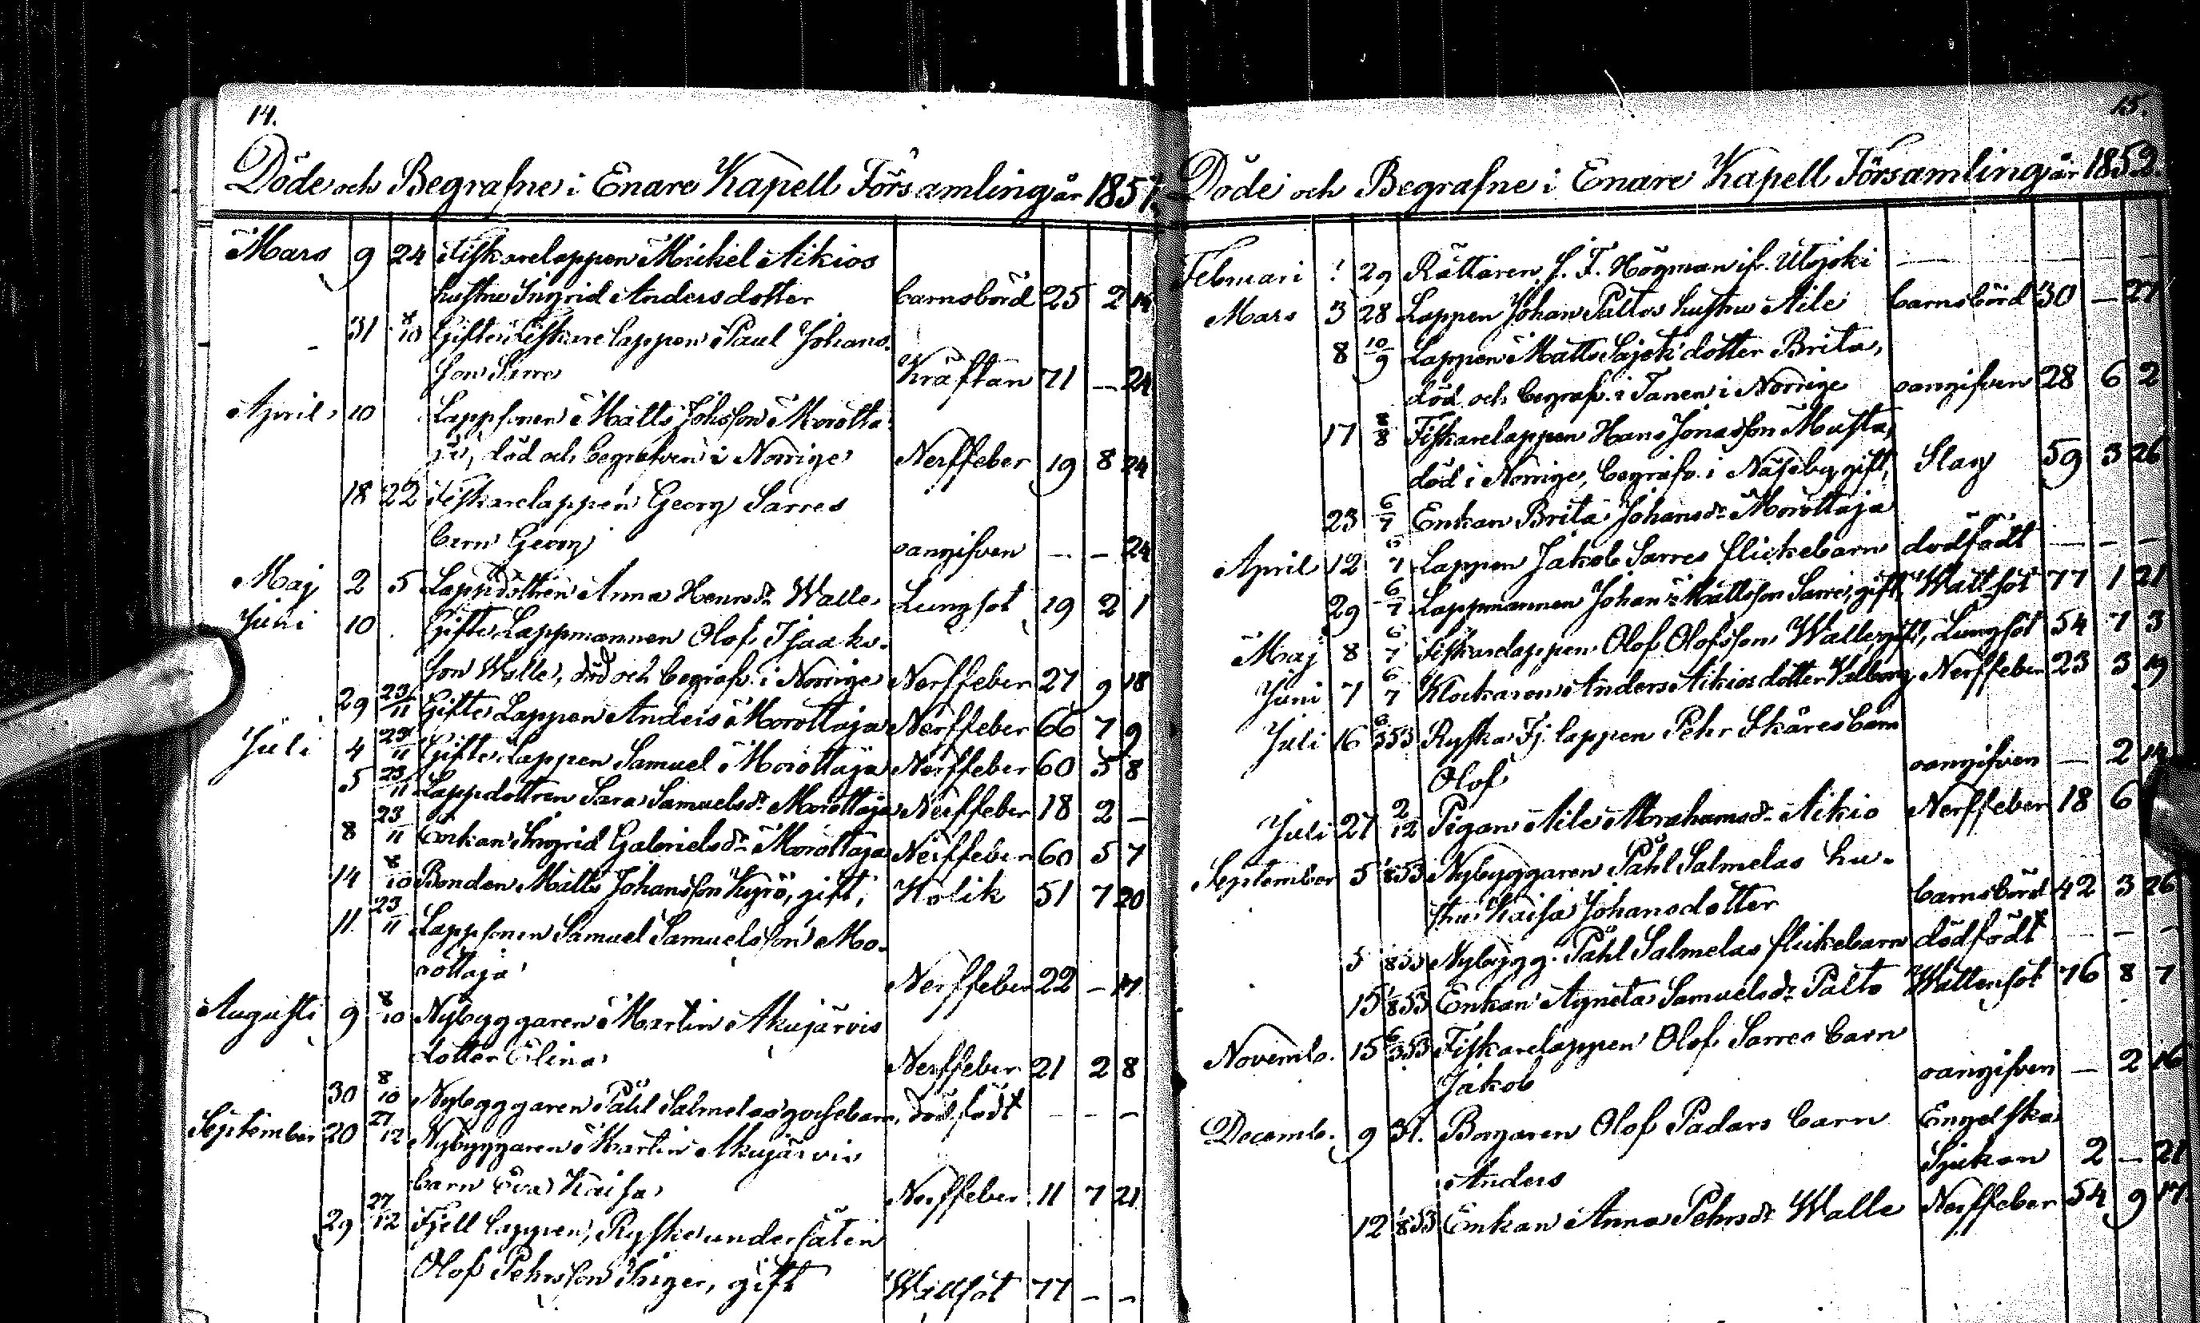 14.
Döde och Begrafne i Enare Kapell Församling år 1851.
Mars 9 24 Fiskarelappen Mickel Aikios
hustru Ingrid Andersdotter barnsbörd 25 2 14
31 8/10 Gifte Fiskarelappen Paul Johans-
son Sarre Kräftan 71 — 24
April 10 Lappsonen Matts Johsson Morotta-
ja, död och begrafven i Norrige Nerffeber 19 8 24
18 22 Fiskarelappen Georg Sarres
barn Georg oangifven — — 24
Maj 2 5 Lappdottren Anna Henrsdr Walle Lungsot 19 2 1
Juni 10 Gifte Lappmannen Olof Isaaks-
son Walle, död och begrafv. i Norrige Nerffeber 27 9 18
29 23/11 Gifte Lappen Anders Morottaja Nerffeber 66 7 9
Juli 4 23/11 Gifte Lappen Samuel Morottaja Nerffeber 60 5 8
5 23/11 Lappdottren Sara Samuelsdr Morottaja Nerffeber 18 2 —
8 23/11 Enkan Ingrid Gabrielsdr Morottaja Nerffeber 60 5 7
14 8/10 Bonden Matts Johansson Kyrö, gift, Kolik 51 7 20
11 23/11 Lappsonen Samuel Samuelsson Mo-
rottaja Nerffeber 22 — 17
Augusti 9 8/10 Nybyggaren Martin Akujärvis
dotter Elina Nerffeber 21 2 8
30 8/10 Nybyggaren Påhl Salmelas gossebarn, dödfödt — — —
September 20 27/12 Nybyggaren Martin Akujärvis
barn Eva Kaisa Nerffeber 11 7 21
29 27/12 Fjell lappen, Ryske undersåten
Olof Pehrsson, gift Wattsot 77 — —
15.
Döde och Begrafne i Enare Kapell Församling år 1852.
Februari 1 29 Rättaren J. F. Högman ifr. Utsjoki — — —
Mars 3 28 Lappen Johan Paltos hustru Aile barnsbörd 30 — 27
8 10/9 Lappen Matts Sajets dotter Brita,
död och begraf. i Tanen i Norrige oangifven 28 6 2
17 8/8 Fiskarelappen Hans Jonasson Musta,
död i Norrige, begrafv. i Näseby, gift, Slag 59 3 26
23 6/7 Enkan Brita Johansdr Morottaja
April 12 6/7 Lappen Jakob Sarres flickebarn dödfödt — — —
29 6/7 Lappmannen Johan Mattsson Sarre, gift, Wattsot 77 1 21
Maj 8 6/7 Fiskarelappen Olof Olofsson Walle, gift, Lungsot 54 7 3
Juni 7 6/7 Klockaren Anders Aikios dotter Valborg Nerffeber 23 3 19
Juli 16 6/3 53 Ryska Fj. lappen Pehr Skåres barn
Olof oangifven — 2 14
Juli 27 2/12 Pigan Aile Abrahamsdr Aikio Nerffeber 18 6
September 5 1/8 53 Nybyggaren Påhl Salmelas hu-
stru Kaisa Johansdotter barnsbörd 42 3 26
5 1/8 53 Nybygg. Påhl Salmelas flickebarn dödfödt — — —
15 1/8 53 Enkan Agneta Samuelsdr Palto Wattensot 76 8 7
Novemb. 15 6/3 53 Fiskarelappen Olof Sarres barn
Jakob oangifven — 2 16
Decemb. 9 31. Borgaren Olof Padars barn Engelska
Anders Sjukan 2 — 21
12 1/8 53 Enkan Anna Pehrsdr Walle Nerffeber 54 9 17